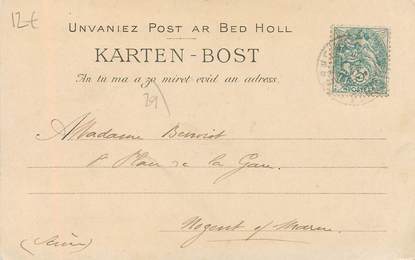 12€
UNVANIEZ POST AR BED HOLL
KARTEN-BOST
An tu ma a zo miret evid an adress.
29
A Madame Benoist
8 Place de la Gare
Nogent s/ Marne
(Seine)